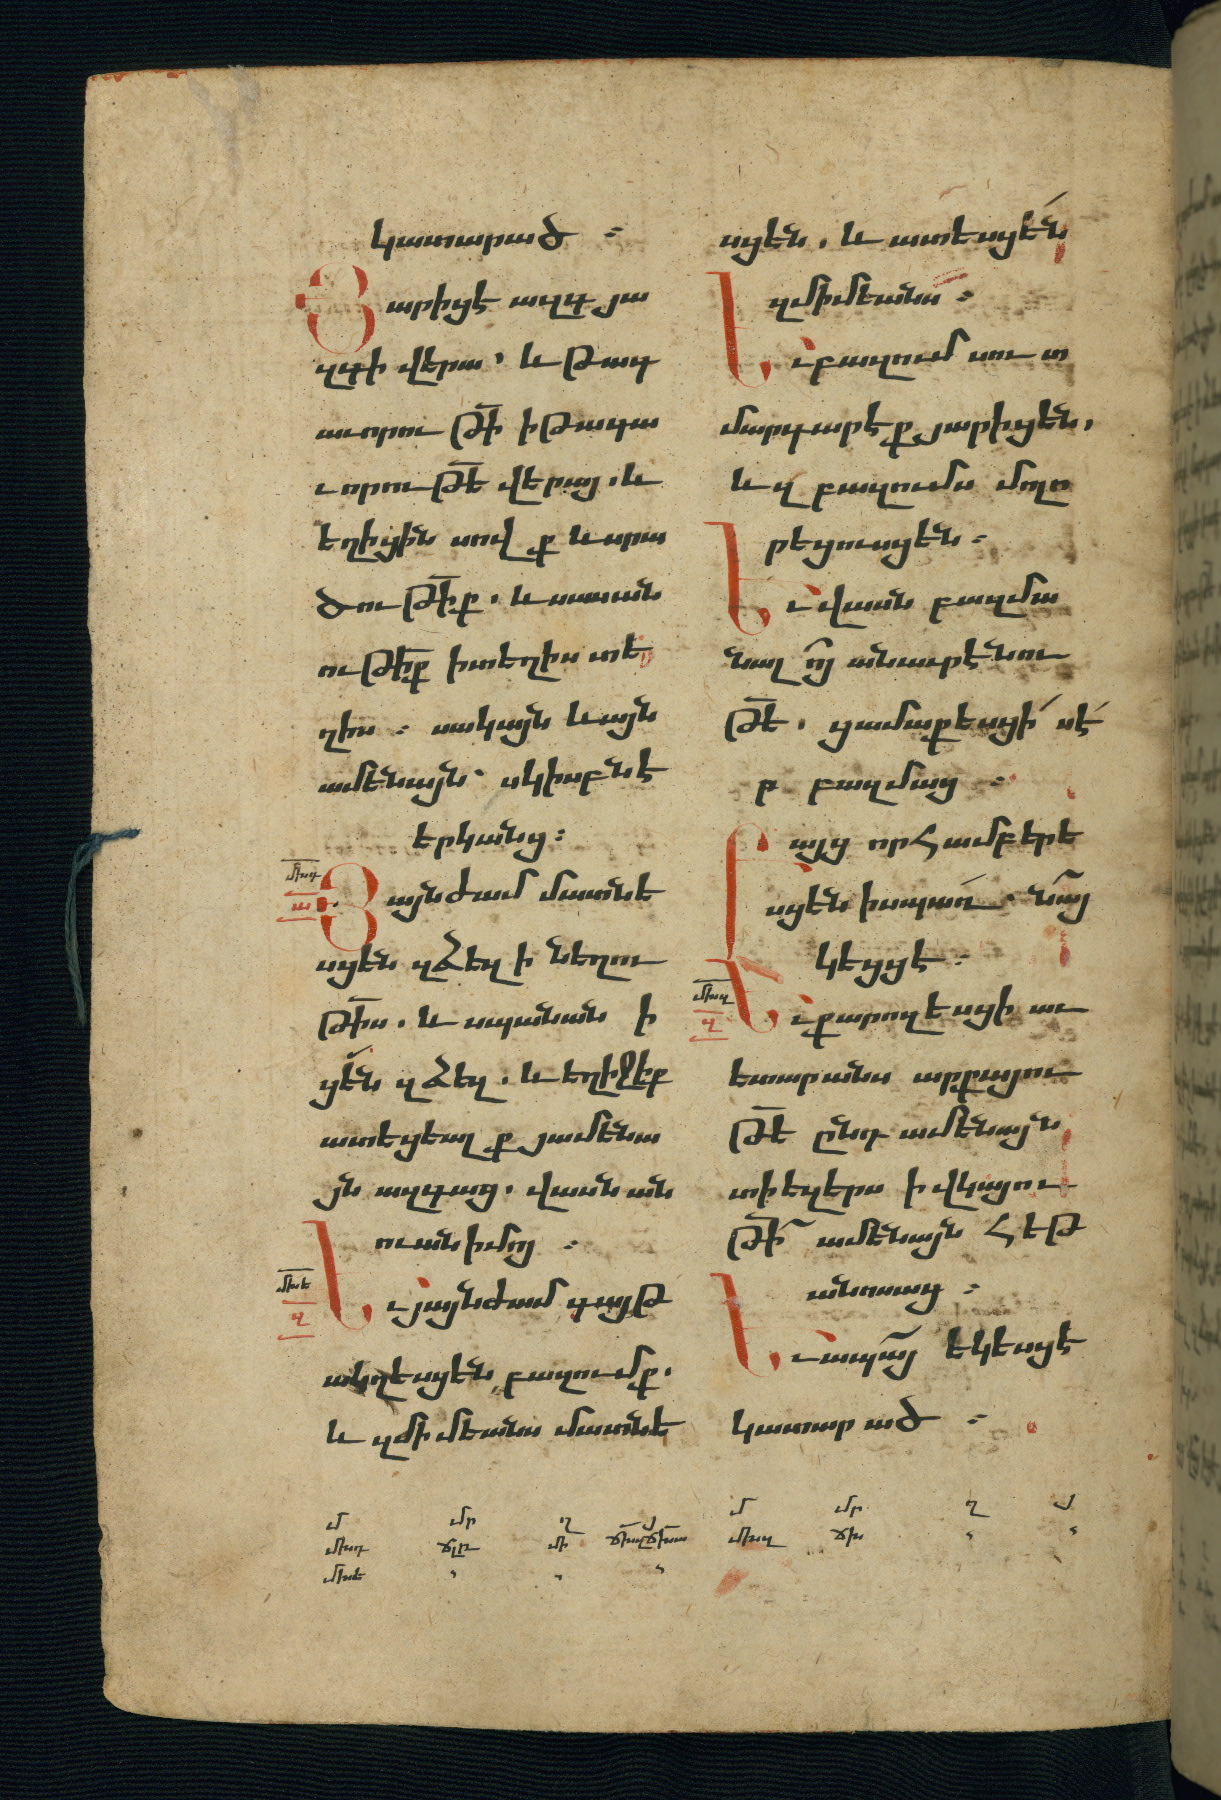 կատարած ։
Յարիցէ ազգ յա
զգի վերա. և թագ
աւորու թի̅ ի թագա
ւորու թե̅ վերայ. և
եղիցին սով ք և սրա
ծու թի̅ք. և սասան
ու թի̅ք ի տեղիս տե
ղիս ։ սակայն և այն
ամենայն՝ սկիզբն է
երկանց ։
մխդ
ա
Յայնժամ մատնե
սցեն զձեզ ի նեղու
թի̅ս. և սպանան ի
ցեն զձեզ. և եղիջիք
ատեցեալ ք յամենա
յն ազգաց. վասն ան
ուան իմոյ ։
մխե
զ
Եւ յայնժամ գայթ
ակղեսցեն բազումք.
և զմիմեանս մատնե
սցեն. և ատեսցեն
զմիմեանս ։
Եւ բազում սուտ
մարգարէք յարիցեն.
և զ բազումս մոլո
րեցուսցեն ։
Եւ վասն բազմա
նալ ոյ անաւրէնու
թե̅. ցամաքեսցի սէ
ր բազմաց ։
Բայց որ համբերե
սցէն իսպառ. նայ
կեցցէ ։
մխզ
զ
Եւ քարոզեսցի աւ
ետարանս արքայու
թե̅ ընդ ամենայն
տիեզերս ի վկայու
թի̅ ամենայն հեթ
անոսաց ։
Եւ ապայ եկեսցէ
կատարած ։
մ մր ղ յ
մխդ ճլը մի
մխե
մ մր ղ յ
մխզ ճխ